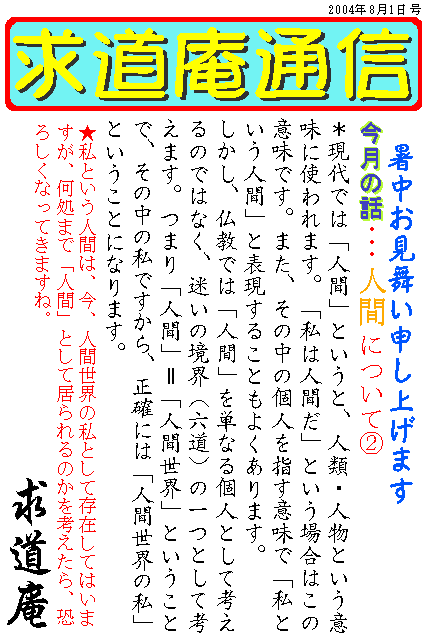 2004年8月1日号
求道庵通信
暑中お見舞い申し上げます
今月の話…人間について②
＊現代では「人間」というと、人類・人物という意
味に使われます。「私は人間だ」という場合はこの
意味です。また、その中の個人を指す意味で「私と
いう人間」と表現することもよくあります。
しかし、仏教では「人間」を単なる個人として考え
るのではなく、迷いの境界（六道）の一つとして考
えます。つまり「人間」＝「人間世界」ということ
で、その中の私ですから、正確には「人間世界の私」
ということになります。
★私という人間は、今、人間世界の私として存在してはいま
すが、何処まで「人間」として居られるのかを考えたら、恐
ろしくなってきますね。
求道庵